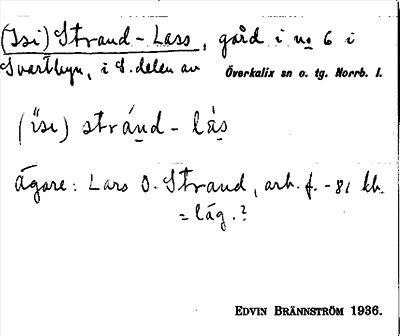 (Isi) Strand-Lass, gård i no 6 i
Svartbyn, i S. delen av Överkalix sn o. tg. Norrb. l.
(ïsi) stránd-làs
ägare: Lars O. Strand, arb. f. -81 kh.
= låg.?
EDVIN BRÄNNSTRÖM 1936.